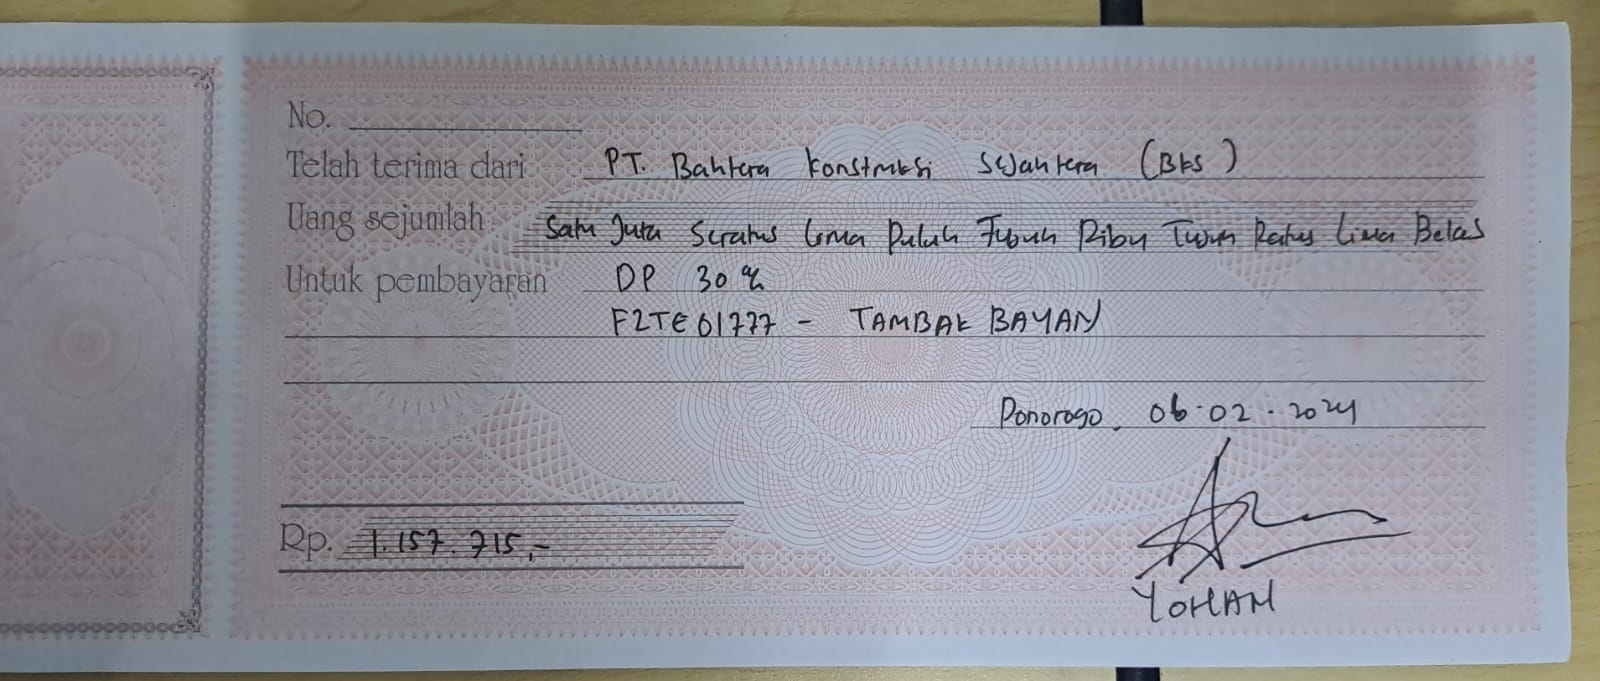 No.
Telah terima dari PT. Bahtera Konstruksi Sejahtera (BKS)
Uang sejumlah Satu Juta Seratus Lima Puluh Tujuh Ribu Tujuh Ratus Lima Belas
Untuk pembayaran DP 30 %
F2TE01777 - TAMBAK BAYAN
Ponorogo, 06.02.2024
Rp. 1.157.715,-
YOHAN